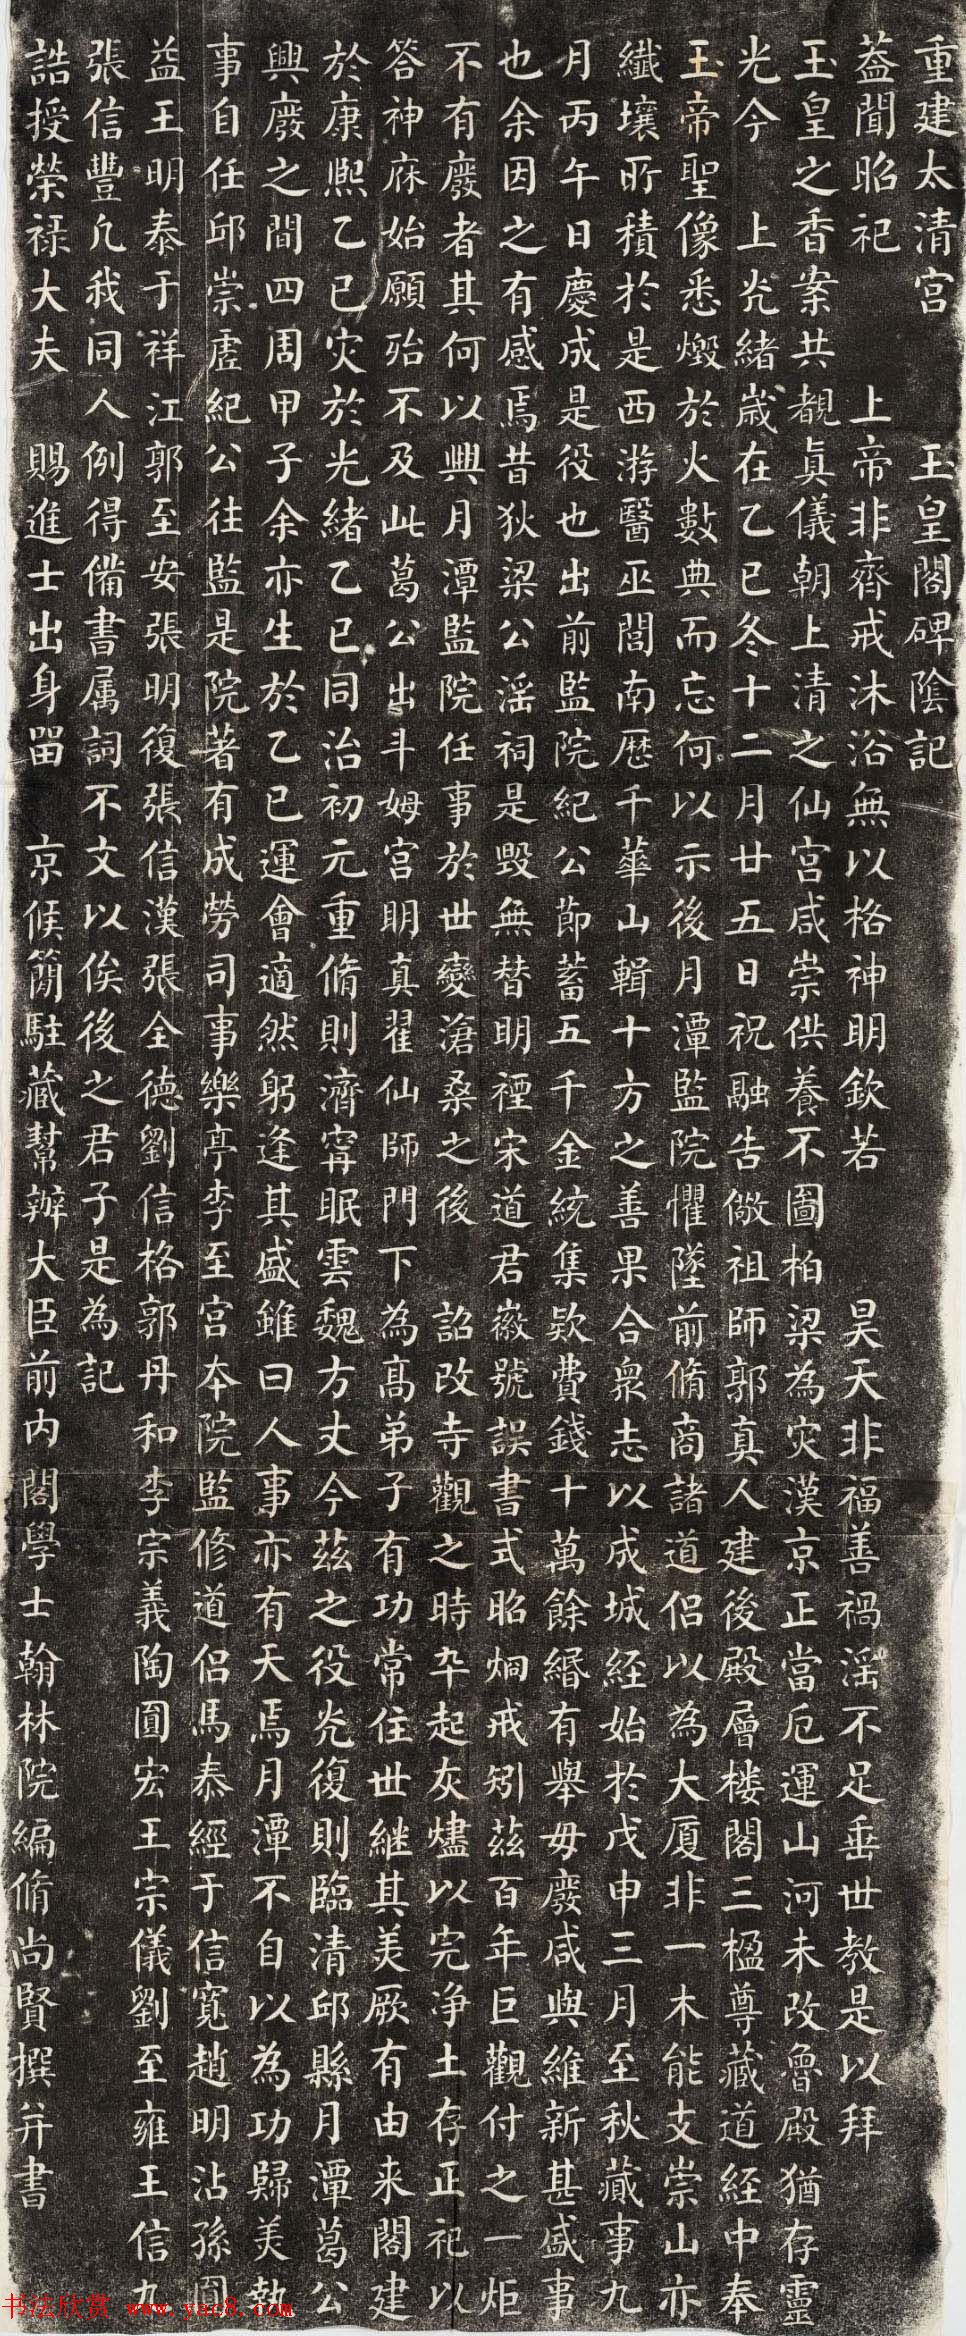 重建太清宮玉皇閣碑陰記
蓋聞昭祀上帝非齊戒沐浴無以格神明欽若昊天非福善禍淫不足垂世教是以拜
玉皇之香案共覩真儀朝上清之仙宮咸崇供養不圖柏梁為灾漢京正當厄運山河未改魯殿猶存靈
光今上光緒歲在乙巳冬十二月廿五日祝融告儆祖師郭真人建後殿層樓閣三楹尊藏道經中奉
玉帝聖像悉燬於火數典而忘何以示後月潭監院懼墜前脩商諸道侶以為大厦非一木能支崇山亦
纖壤所積於是西游醫巫閭南歷千華山輯十方之善果合眾志以成城經始於戊申三月至秋蕆事九
月丙午日慶成是役也出前監院紀公節蓄五千金統集欵費錢十萬餘緡有舉毋廢咸與維新甚盛事
也余因之有感焉昔狄梁公淫祠是毀無替明禋宋道君徽號誤書式昭炯戒矧茲百年巨觀付之一炬
不有廢者其何以興月潭監院任事於世變滄桑之後詔改寺觀之時卒起灰燼以完净土存正祀以
答神庥始願殆不及此葛公出斗姆宮明真翟仙師門下為高弟子有功常住世繼其美厥有由来閣建
於康熙乙巳灾於光緒乙巳同治初元重脩則濟寗眠雲魏方丈今茲之役光復則臨清邱縣月潭葛公
興廢之間四周甲子余亦生於乙巳運會適然躬逢其盛雖曰人事亦有天焉月潭不自以為功歸美執
事自任邱崇虛紀公往監是院著有成勞司事樂亭李至宮本院監修道侶馬泰經于信寬趙明沾孫圓
益王明泰于祥江郭至安張明復張信漢張全德劉信格郭丹和李宗義陶圓宏王宗儀劉至雍王信九
張信豐凡我同人例得備書属詞不文以俟後之君子是為記
誥授榮祿大夫賜進士出身留京候簡駐藏幫辦大臣前內閣學士翰林院編脩尚賢撰并書
书法欣赏 www.yac8.com